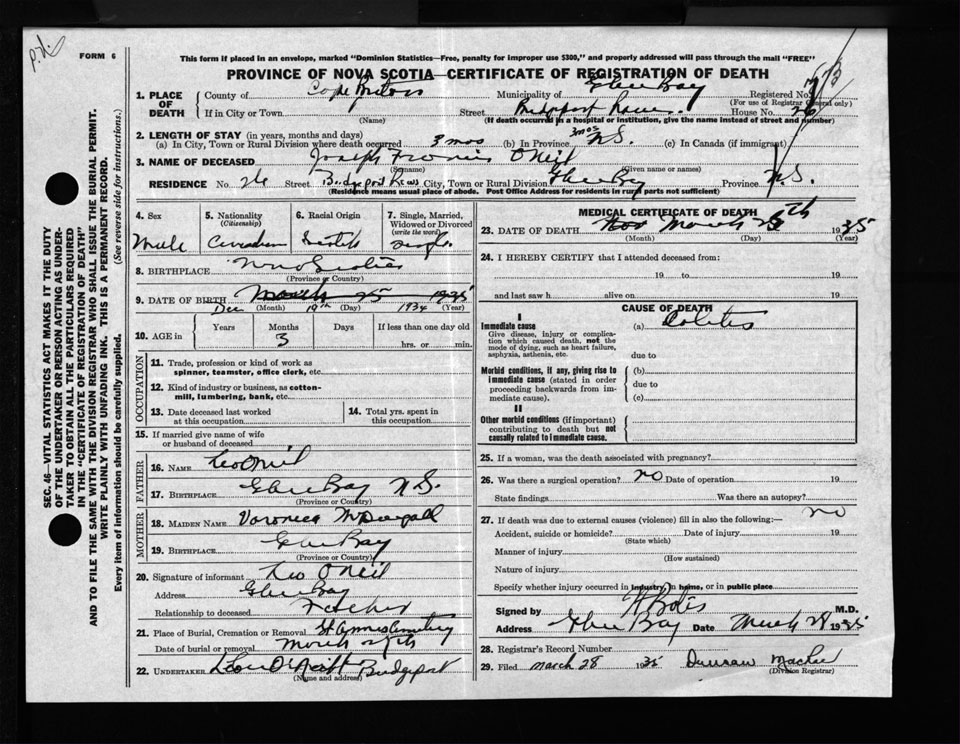 FORM 6
This form if placed in an envelope, marked "Dominion Statistics—Free, penalty for improper use $300," and properly addressed will pass through the mail "FREE"
PROVINCE OF NOVA SCOTIA—CERTIFICATE OF REGISTRATION OF DEATH
SEC. 46—VITAL STATISTICS ACT MAKES IT THE DUTY
OF THE UNDERTAKER OR PERSON ACTING AS UNDER-
TAKER TO OBTAIN ALL THE PARTICULARS REQUIRED
IN THE "CERTIFICATE OF REGISTRATION OF DEATH"
AND TO FILE THE SAME WITH THE DIVISION REGISTRAR WHO SHALL ISSUE THE BURIAL PERMIT.
WRITE PLAINLY WITH UNFADING INK. THIS IS A PERMANENT RECORD.
Every item of information should be carefully supplied. (See reverse side for instructions.)
1. PLACE OF DEATH
County of Cape Breton Municipality of Glace Bay Registered No.
(For use of Registrar General only)
If in City or Town Street Bridgeport House No. 26
(Name) (If death occurred in a hospital or institution, give the name instead of street and number)
2. LENGTH OF STAY (in years, months and days)
(a) In City, Town or Rural Division where death occurred 3 mos (b) In Province 3 mos N.S. (c) In Canada (if immigrant)
3. NAME OF DECEASED Joseph Francis O'Neil
(Surname) (Given name or names)
RESIDENCE No 26 Street Bridgeport Rows City, Town or Rural Division Glace Bay Province N.S.
(Residence means usual place of abode. Post Office Address for residents in rural parts not sufficient)
4. Sex
Male
5. Nationality
(Citizenship)
Canadian
6. Racial Origin
Scotch
7. Single, Married,
Widowed or Divorced
(write the word)
single
8. BIRTHPLACE Nova Scotia
(Province or Country)
9. DATE OF BIRTH March 25 1935
Dec (Month) 19th (Day) 1934 (Year)
10. AGE in
Years Months Days If less than one day old
3 hrs. or min.
OCCUPATION
11. Trade, profession or kind of work as
spinner, teamster, office clerk, etc.
12. Kind of industry or business, as cotton-
mill, lumbering, bank, etc.
13. Date deceased last worked
at this occupation
14. Total yrs. spent in
this occupation
15. If married give name of wife
or husband of deceased
FATHER
16. NAME Leo O'Neil
17. BIRTHPLACE Glace Bay N.S.
(Province or Country)
MOTHER
18. MAIDEN NAME Varonica McDougall
19. BIRTHPLACE Glace Bay
(Province or Country)
20. Signature of informant Leo O'Neil
Address Glace Bay
Relationship to deceased Father
21. Place of Burial, Cremation or Removal St Annes Cemetery
Date of burial or removal March
22. UNDERTAKER Leo O'Neill Bridgeport
(Name and address)
MEDICAL CERTIFICATE OF DEATH
23. DATE OF DEATH March 25th 1935
(Month) (Day) (Year)
24. I HEREBY CERTIFY that I attended deceased from:
19 to 19
and last saw h alive on 19
CAUSE OF DEATH
I
Immediate cause
Give disease, injury or complica-
tion which caused death, not the
mode of dying, such as heart failure,
asphyxia, asthenia, etc.
(a) Colitis
due to
Morbid conditions, if any, giving rise to
immediate cause (stated in order
proceeding backwards from im-
mediate cause).
(b)
due to
(c)
II
Other morbid conditions (if important)
contributing to death but not
causally related to immediate cause.
25. If a woman, was the death associated with pregnancy?
26. Was there a surgical operation? no Date of operation 19
State findings Was there an autopsy?
no
27. If death was due to external causes (violence) fill in also the following:—
Accident, suicide or homicide? Date of injury 19
(State which)
Manner of injury
(How sustained)
Nature of injury
Specify whether injury occurred in industry, in home, or in public place
Signed by M.D.
Address Glace Bay Date March 28 1935
28. Registrar's Record Number
29. Filed March 28 1935 Duncan
(Division Registrar)